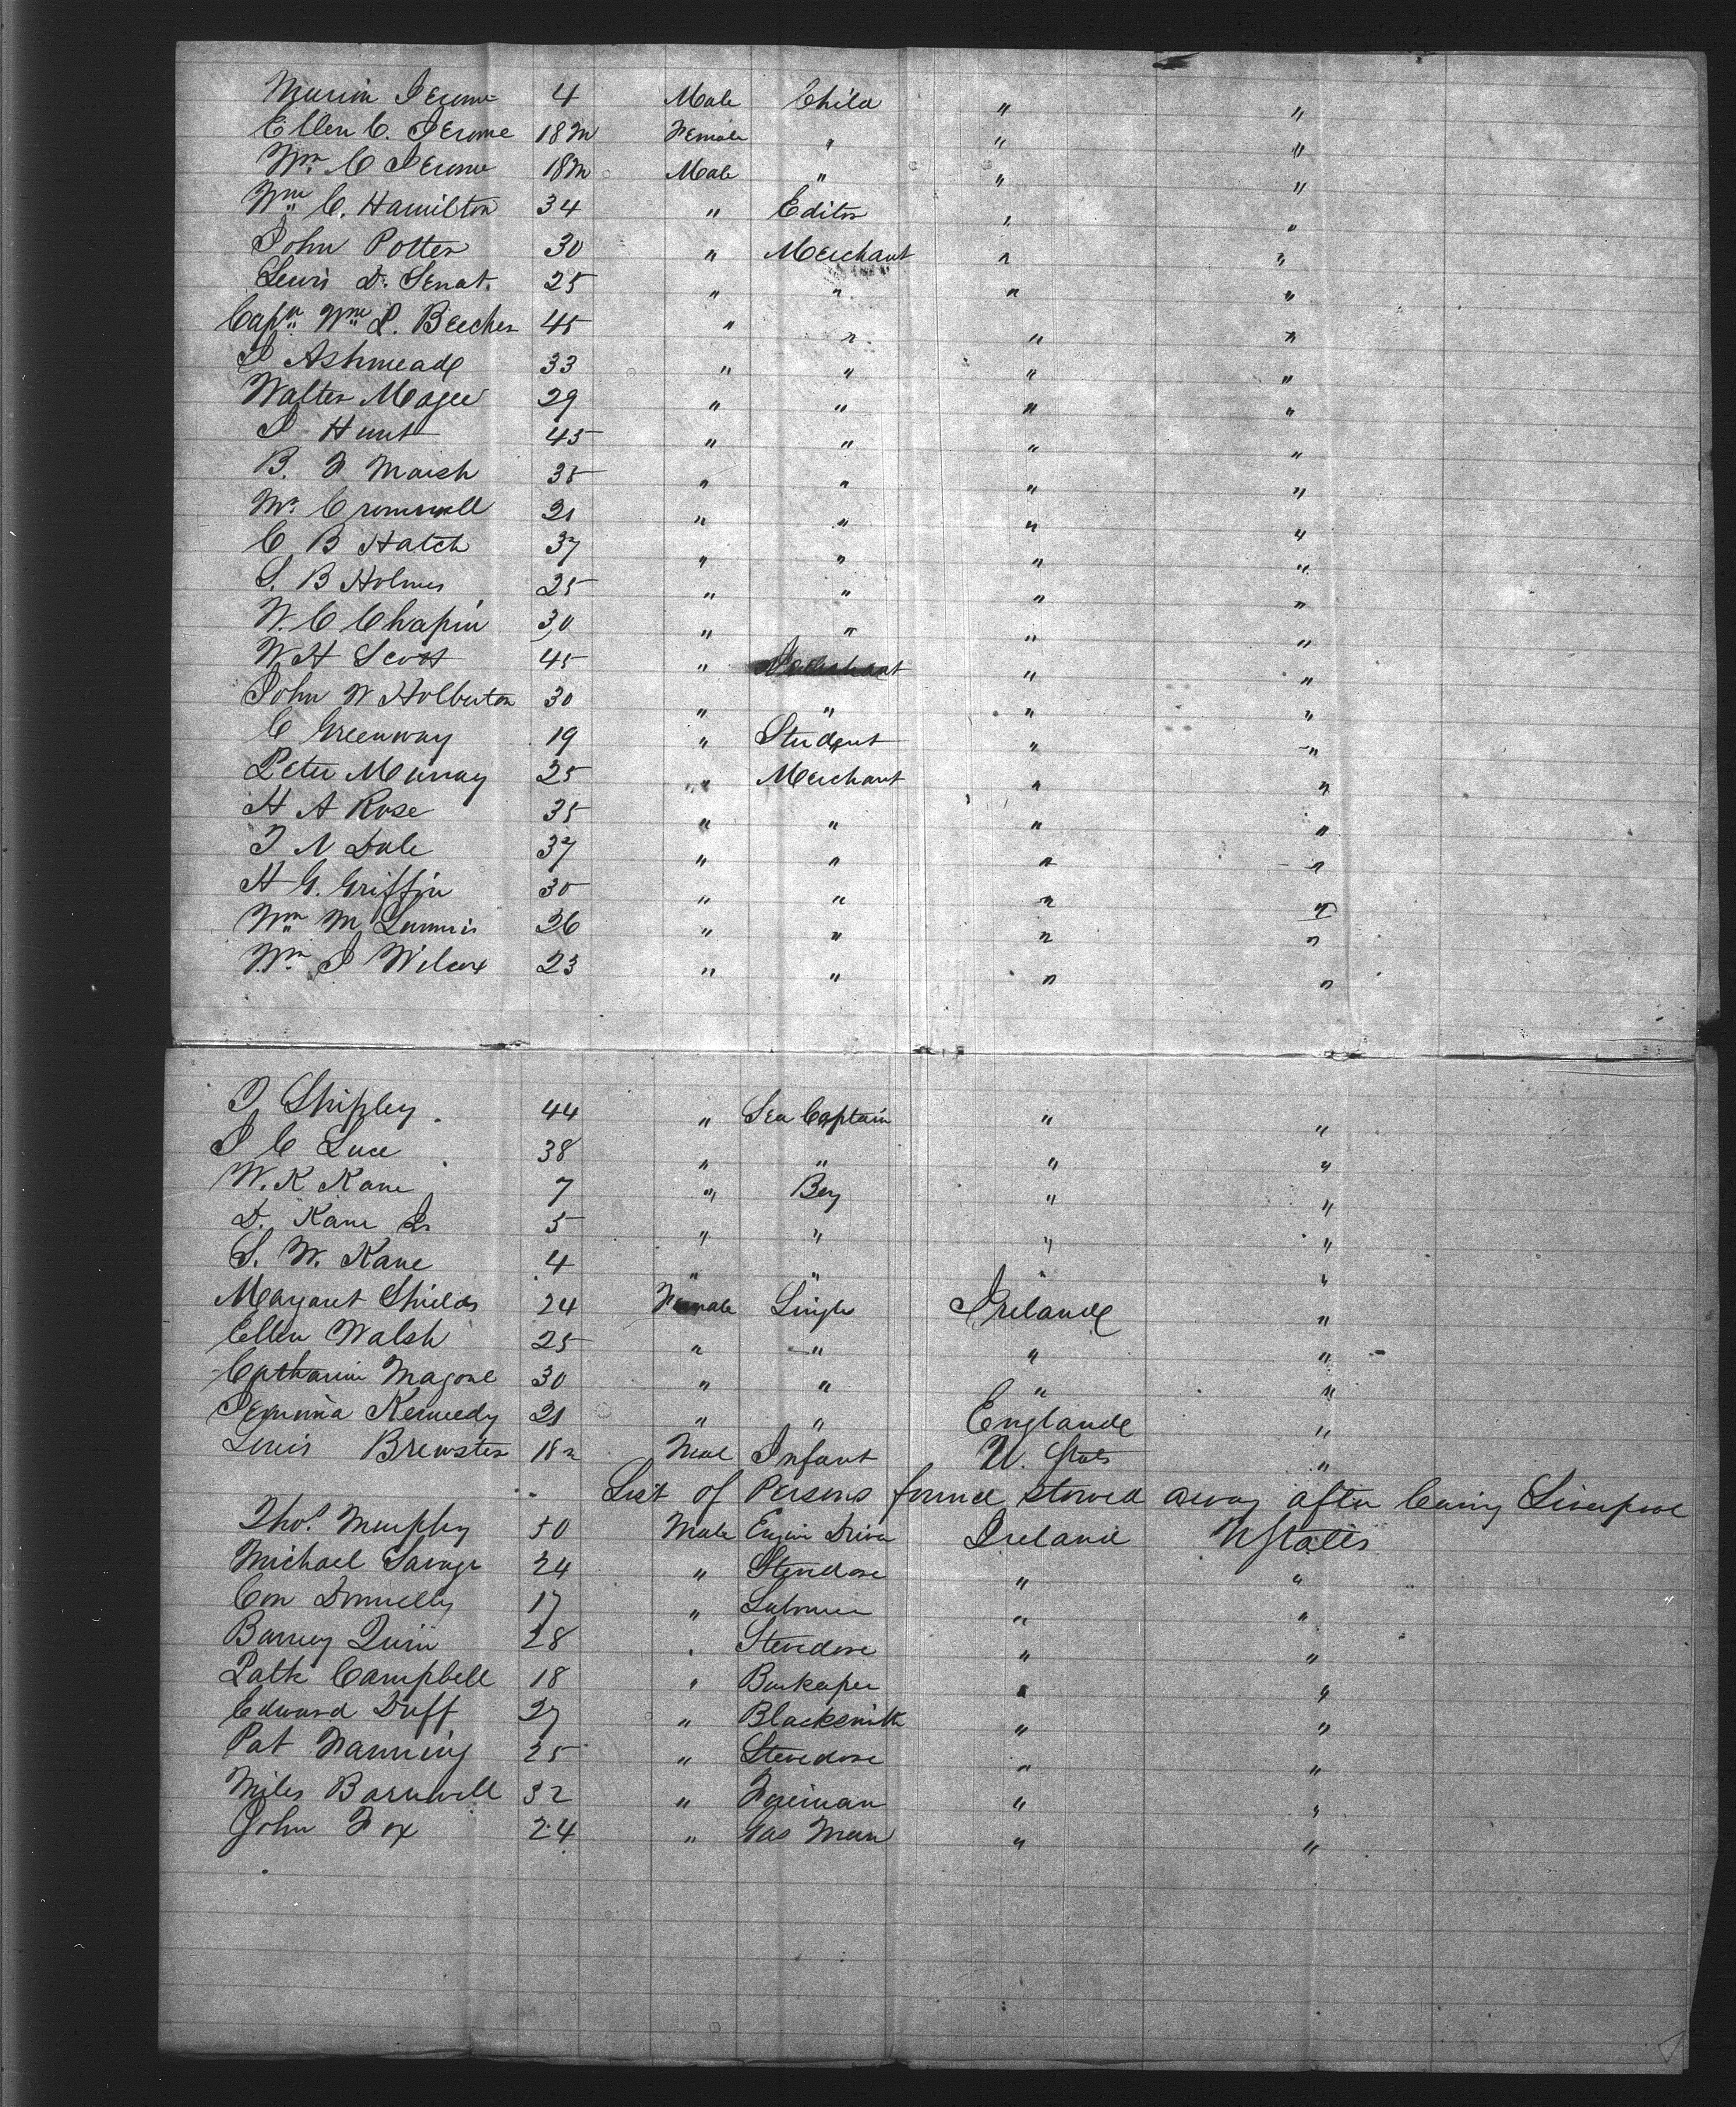 Marion Jerome 4 Male Child " "
Ellen C. Jerome 18m Female " " "
Wm. C Jerome 18m Male " " "
Wm C. Hamilton 34 " Editor " "
John Potter 30 " Merchant " "
Lewis D. Senat. 25 " " " "
Capn Wm L. Beecher 45 " " " "
J Ashmead 33 " " " "
Walter Magee 29 " " " "
J Hunt 45 " " " "
B. F Marsh 35 " " " "
Mr. Cromwell 21 " " " "
C B Hatch 37 " " " "
S. B Holmes 25 " " " "
W. C Chapin 30 " " " "
W H Scott 45 " " "
John W Holberton 30 " " " "
C Greenway 19 " Student " "
Peter Murray 25 " Merchant " "
H A Rose 35 " " " "
T N Dale 37 " " " "
H G. Griffin 30 " " " "
Wm M Lummis 26 " " " "
Wm. J Wilcox 23 " " " "
T Shipley. 44 " Sea Captain " "
J C Luce 38 " " " "
W. K Kane 7 " Boy " "
D. Kane Jr 5 " " " "
S. W. Kane 4 " " " "
Margaret Shields 24 Female Single Ireland "
Ellen Walsh 25 " " " "
Catharine Magone 30 " " " "
Jemima Kennedy 21 " " England "
Louis Brewster 18m Male Infant U. Stats "
List of Persons found stowed away after leaving Liverpool
Thos. Murphy 50 Male Engin Driver Ireland UStates
Michael Savage 24 " Stevedore " "
Con Donnelly 17 " Labourer " "
Barney Quin 28 " Stevedore " "
Patk Campbell 18 " Barkeeper " "
Edward Duff 27 " Blacksmith " "
Pat Fanning 25 " Stevedore " "
Miles Barnwell 32 " Foreman " "
John Fox 24 " Gas Man " "